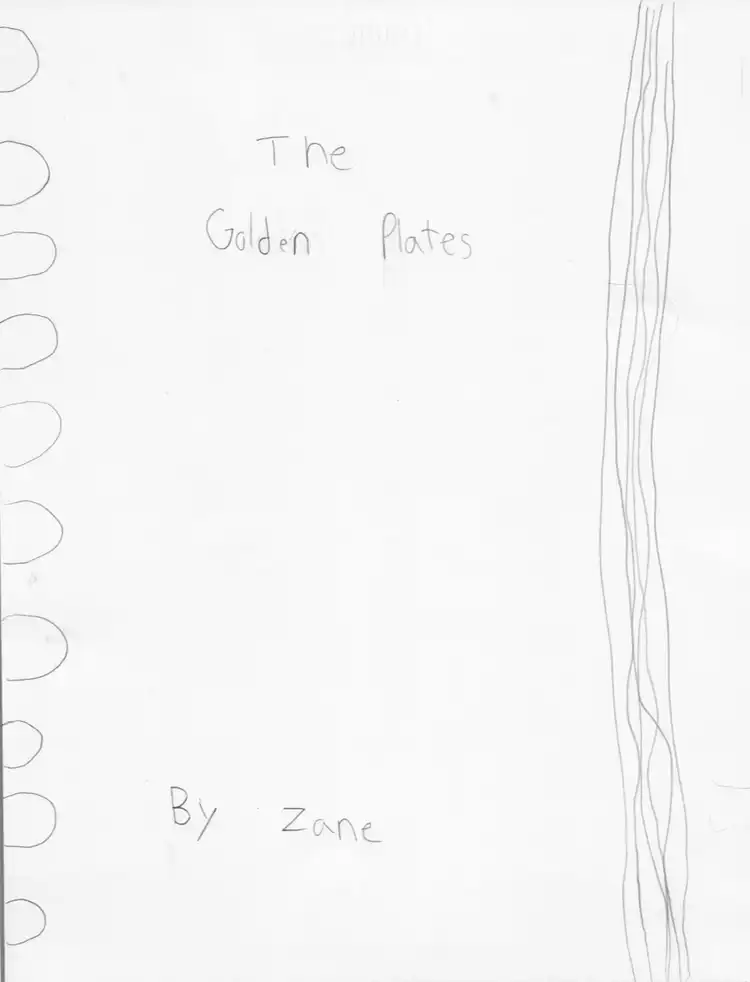 The
Golden Plates
By Zane